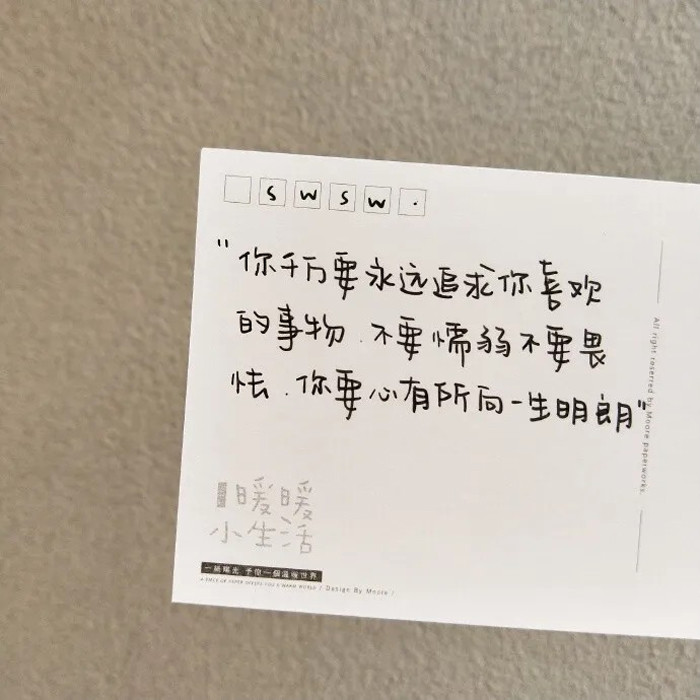 S W S W .
"你千万要永远追求你喜欢
的事物.不要懦弱不要畏
怯.你要心有所向一生明朗"
All right reserred by Moore paperworks.
暖暖
小生活
一紙陽光 予你一個溫暖世界
/ Design By Moore /